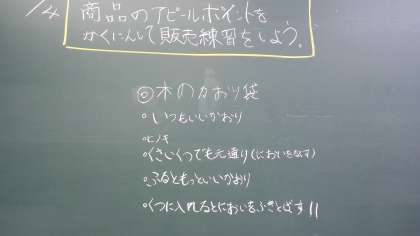 1/4
商品のアピールポイントを
かくにんして販売練習をしよう。
◎木のかおり袋
○いつもいいかおり
○ヒノキ
○くさいくつでも元通り(においをなくす)
○ふるともっといいかおり
○くつに入れるとにおいをふきとばす!!